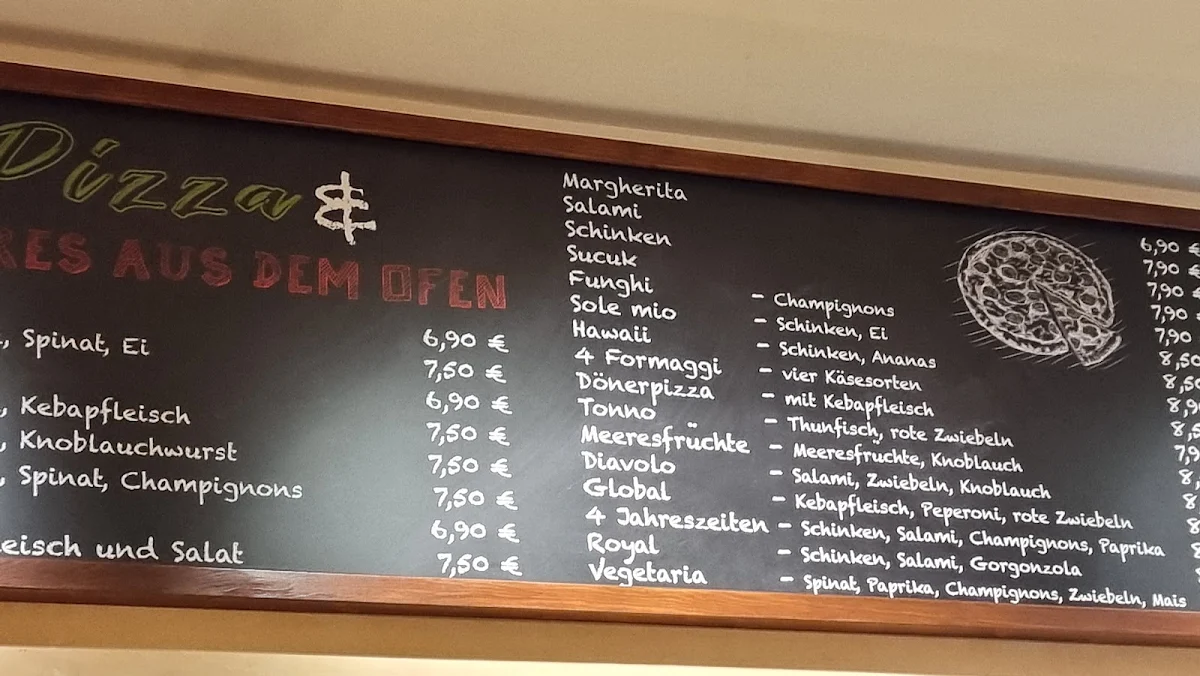 Pizza &
RES AUS DEM OFEN
6,90 €
, Spinat, Ei 7,50 €
6,90 €
, Kebapfleisch 7,50 €
, Knoblauchwurst 7,50 €
, Spinat, Champignons 7,50 €
6,90 €
leisch und Salat 7,50 €
Margherita 6,90 €
Salami 7,90 €
Schinken 7,90 €
Sucuk 7,90
Funghi - Champignons 7,90
Sole mio - Schinken, Ei 8,50
Hawaii - Schinken, Ananas 8,50
4 Formaggi - vier Käsesorten 8,9
Dönerpizza - mit Kebapfleisch 8,5
Tonno - Thunfisch, rote Zwiebeln 7,9
Meeresfrüchte - Meeresfruchte, Knoblauch 8,
Diavolo - Salami, Zwiebeln, Knoblauch 8
Global - Kebapfleisch, Peperoni, rote Zwiebeln 8
4 Jahreszeiten - Schinken, Salami, Champignons, Paprika
Royal - Schinken, Salami, Gorgonzola
Vegetaria - Spinat, Paprika, Champignons, Zwiebeln, Mais